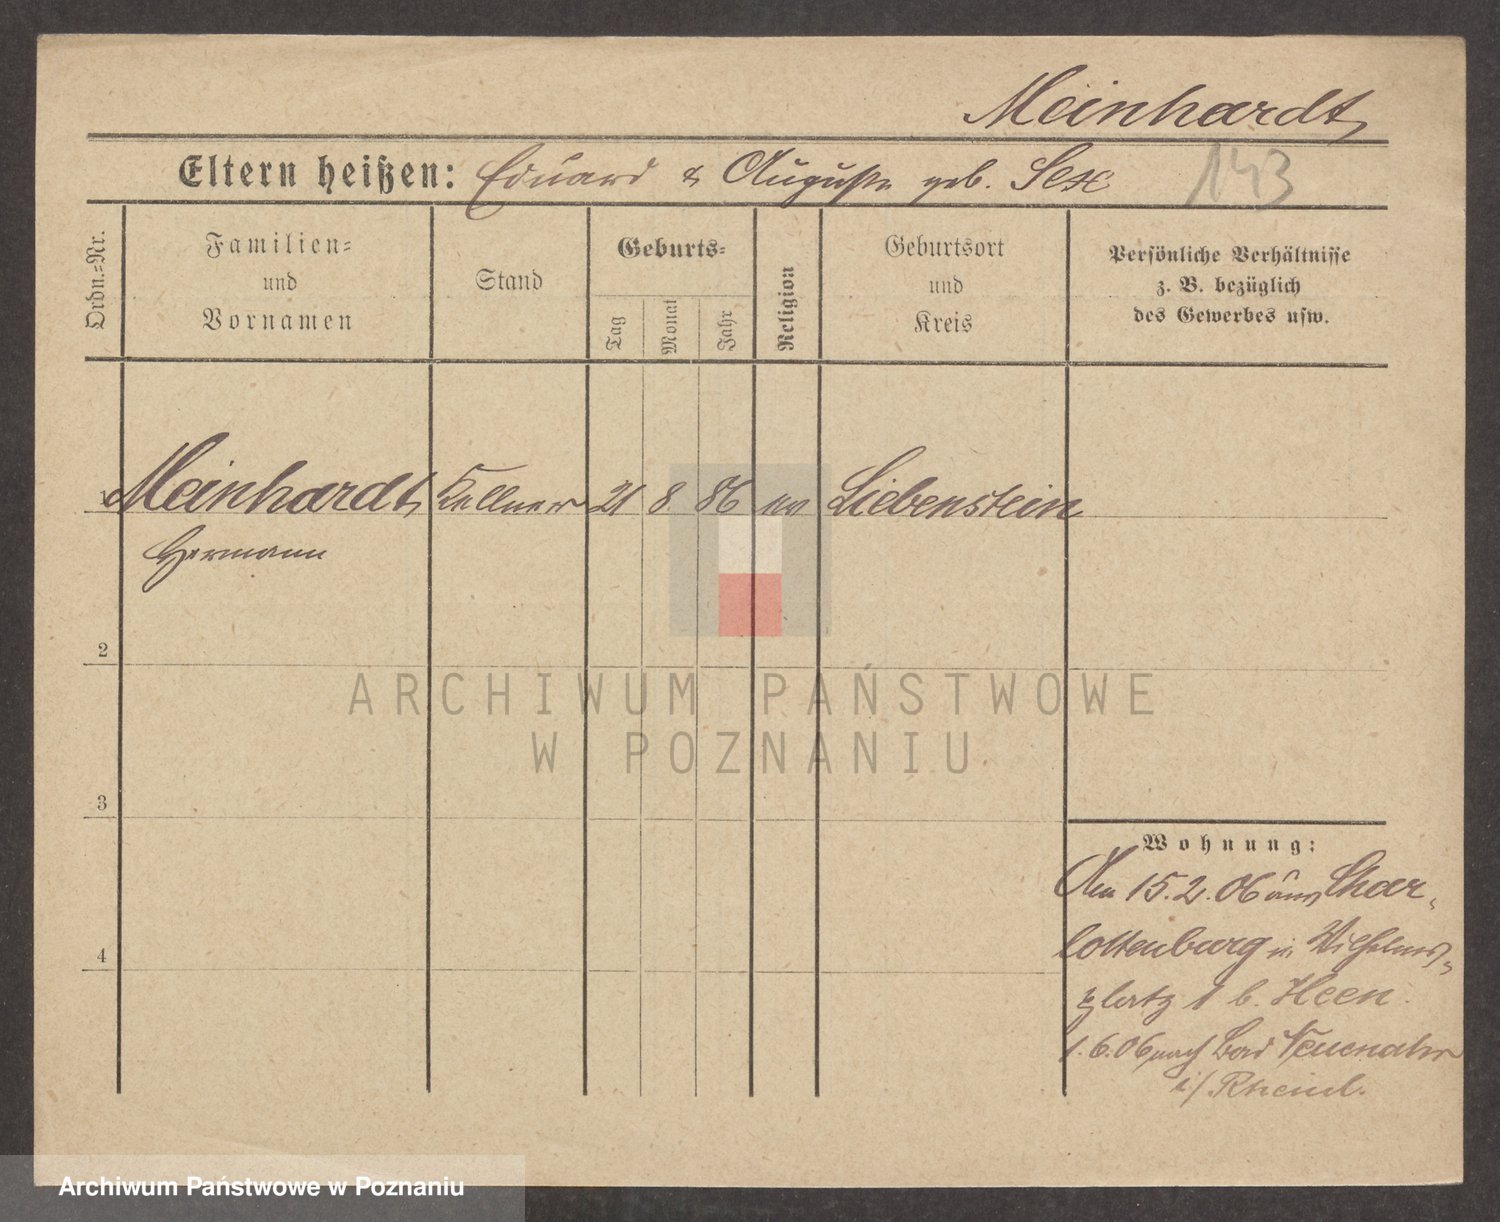 Meinhardt
Eltern heißen: Eduard & Auguste geb. Sex
143
Ordn.=Nr.
Familien=
und
Vornamen
Stand
Geburts=
Tag
Monat
Jahr
Religion
Geburtsort
und
Kreis
Persönliche Verhältnisse
z. B. bezüglich
des Gewerbes usw.
1 Meinhardt Kellner 21 8. 86 ev Liebenstein
Hermann
2
ARCHIWUM PAŃSTWOWE
W POZNANIU
3
4
Wohnung:
Am 15.2.06 aus Char-
lottenburg in Wilhelms-
platz 1 b. Heen.
1.6.06 nach Bad Neuenahr
i/Rheinl.
Archiwum Państwowe w Poznaniu